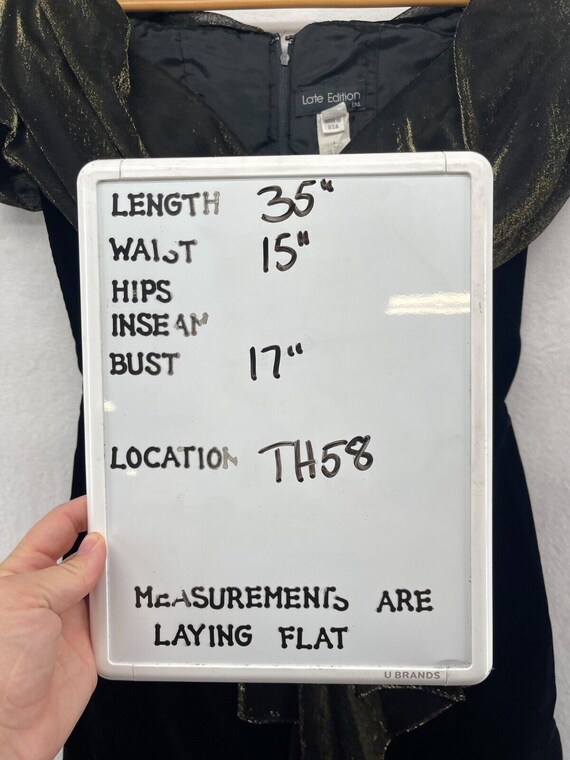 Late Edition
Ltd.
USA
LENGTH 35"
WAIST 15"
HIPS
INSEAM
BUST 17"
LOCATION TH58
MEASUREMENTS ARE
LAYING FLAT
U BRANDS